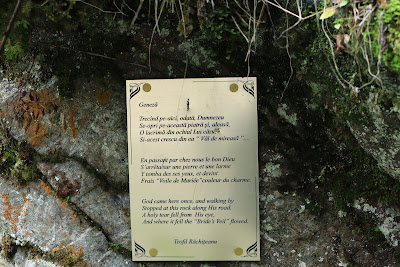 Geneză
Trecînd pe-aici, odată, Dumnezeu
Se-opri pe-această piatră şi, aleasă,
O lacrimă din ochiul Lui căzu
Si-acest crescu din ea " Văl de mireasă "...
En passant par chez nous le bon Dieu
S'arrêta sur une pierre et une larme
Y tomba des ses yeux, et devint
Frais "Voile de Mariée" couleur du charme.
God came here once, and walking by
Stopped at this rock along His road.
A holy tear fell from His eye,
And where it fell the "Bride's Veil" flowed.
Teofil Răchiţeanu